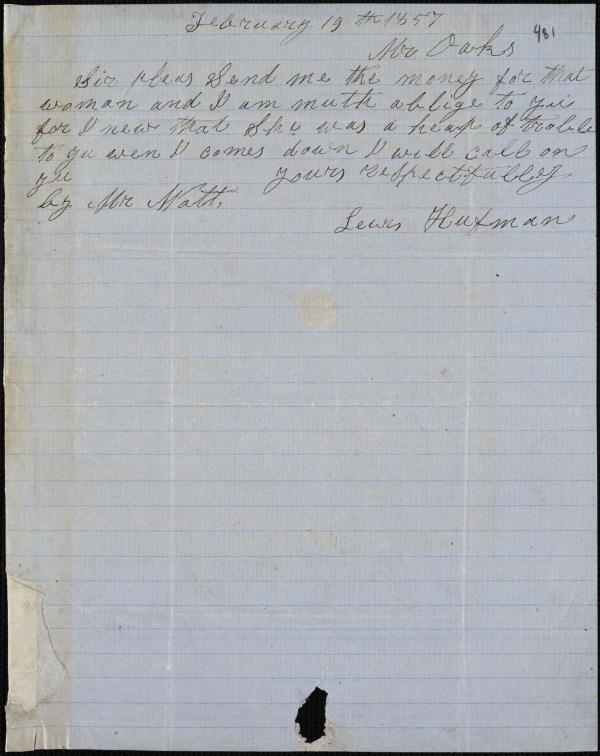 February 19 th 1857
481
Mr Oaks
Sir pleas Send me the money for that
woman and I am muth ablige to yu
for I new that She was a heap of trouble
to yu wen I comes down I will call on
yu yours respectfulley
by Mr Nott,
Lewis Hufman